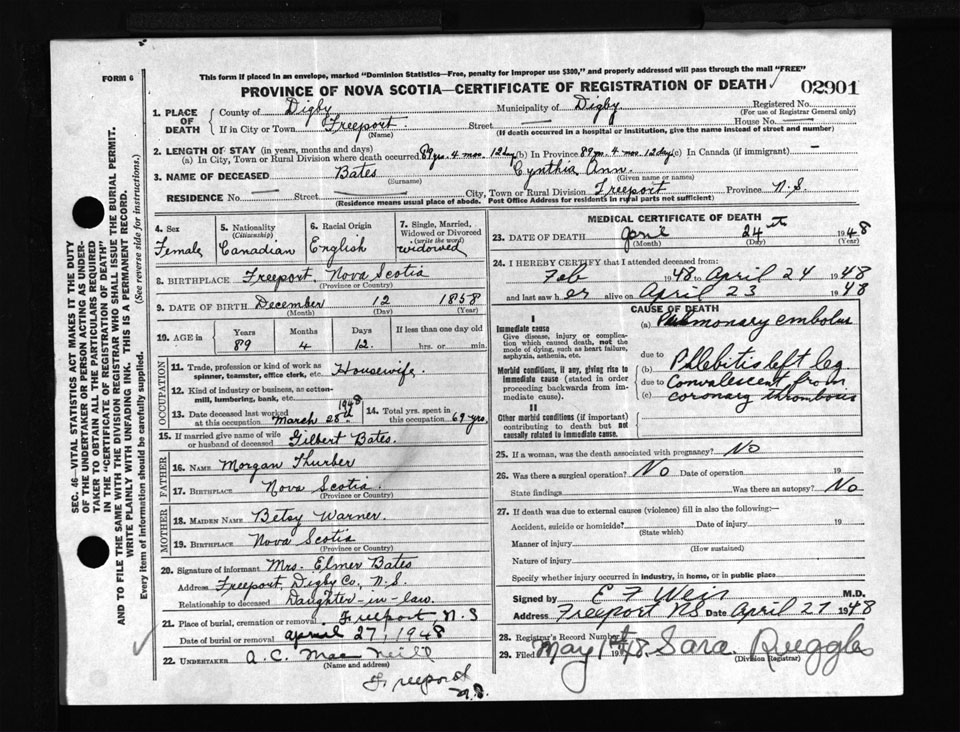 FORM 6
This form if placed in an envelope, marked "Dominion Statistics—Free, penalty for improper use $300," and properly addressed will pass through the mail "FREE"
PROVINCE OF NOVA SCOTIA—CERTIFICATE OF REGISTRATION OF DEATH 02901
1. PLACE OF DEATH
County of Digby Municipality of Digby Registered No.
(For use of Registrar General only)
If in City or Town Freeport Street — House No. —
(Name) (If death occurred in a hospital or institution, give the name instead of street and number)
2. LENGTH OF STAY (in years, months and days)
(a) In City, Town or Rural Division where death occurred 89 yrs. 4 mos. 12 dys (b) In Province 89 yr. 4 mos. 12 days (c) In Canada (if immigrant) —
3. NAME OF DECEASED Bates Cynthia Ann.
(Surname) (Given name or names)
RESIDENCE No. — Street — City, Town or Rural Division Freeport Province N.S.
(Residence means usual place of abode. Post Office Address for residents in rural parts not sufficient)
4. Sex
Female
5. Nationality
(Citizenship)
Canadian
6. Racial Origin
English
7. Single, Married, Widowed or Divorced
(write the word)
widowed
8. BIRTHPLACE Freeport, Nova Scotia
(Province or Country)
9. DATE OF BIRTH December 12 1858
(Month) (Day) (Year)
10. AGE in Years Months Days If less than one day old
89 4 12. hrs. or min.
OCCUPATION
11. Trade, profession or kind of work as spinner, teamster, office clerk, etc. Housewife.
12. Kind of industry or business, as cotton-mill, lumbering, bank, etc.
13. Date deceased last worked at this occupation March 28th 1948
14. Total yrs. spent in this occupation 69 yrs.
15. If married give name of wife or husband of deceased Gilbert Bates.
FATHER
16. NAME Morgan Thurber
17. BIRTHPLACE Nova Scotia.
(Province or Country)
MOTHER
18. MAIDEN NAME Betsy Warner.
19. BIRTHPLACE Nova Scotia
(Province or Country)
20. Signature of informant Mrs. Elmer Bates
Address Freeport, Digby Co, N.S.
Relationship to deceased Daughter-in-law.
21. Place of burial, cremation or removal Freeport, N.S
Date of burial or removal april 27, 1948
22. UNDERTAKER A.C. MacNeill
(Name and address)
Freeport
N.S.
MEDICAL CERTIFICATE OF DEATH
23. DATE OF DEATH April 24th 1948
(Month) (Day) (Year)
24. I HEREBY CERTIFY that I attended deceased from:
Feb 1948 to April 24 1948
and last saw her alive on April 23 1948
CAUSE OF DEATH
I
Immediate cause
Give disease, injury or complication which caused death, not the mode of dying, such as heart failure, asphyxia, asthenia, etc.
(a) Pulmonary embolus
due to
Morbid conditions, if any, giving rise to immediate cause (stated in order proceeding backwards from immediate cause).
(b) Phlebitis left leg
due to
(c) Convalescent from
coronary thrombosis
II
Other morbid conditions (if important) contributing to death but not causally related to immediate cause.
25. If a woman, was the death associated with pregnancy? No
26. Was there a surgical operation? No Date of operation 19
State findings Was there an autopsy? No
27. If death was due to external causes (violence) fill in also the following:—
Accident, suicide or homicide? Date of injury 19
(State which)
Manner of injury
(How sustained)
Nature of injury
Specify whether injury occurred in industry, in home, or in public place
Signed by E F Weir M.D.
Address Freeport NS Date April 27 1948
28. Registrar's Record Number
29. Filed May 1st 1948. Sara Ruggles
(Division Registrar)
SEC. 46—VITAL STATISTICS ACT MAKES IT THE DUTY
OF THE UNDERTAKER OR PERSON ACTING AS UNDERTAKER TO OBTAIN ALL THE PARTICULARS REQUIRED
IN THE "CERTIFICATE OF REGISTRATION OF DEATH"
AND TO FILE THE SAME WITH THE DIVISION REGISTRAR WHO SHALL ISSUE THE BURIAL PERMIT.
WRITE PLAINLY WITH UNFADING INK. THIS IS A PERMANENT RECORD.
Every item of information should be carefully supplied. (See reverse side for instructions.)